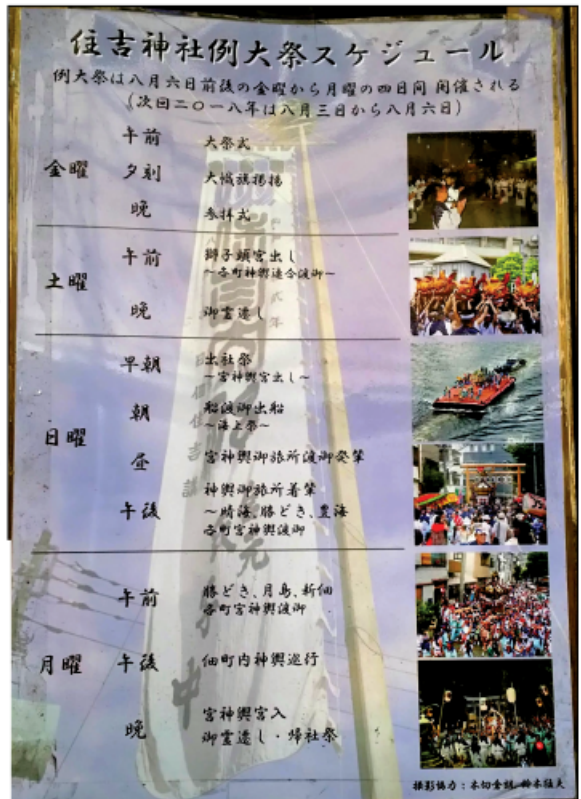 住吉神社例大祭スケジュール
例大祭は八月六日前後の金曜から月曜の四日間 開催される
(次回二〇一八年は八月三日から八月六日)
金曜
午前 大祭式
夕刻 大幟旗掲揚
晩 参拝式
土曜
午前 獅子頭宮出し
〜各町神輿連合渡御〜
晩 御霊遷し
日曜
早朝 出社祭
〜宮神輿宮出し〜
朝 船渡御出船
〜海上祭〜
昼 宮神輿御旅所渡御発輦
午後 神輿御旅所着輦
〜晴海、勝どき、豊海
各町宮神輿渡御
月曜
午前 勝どき、月島、新佃
各町宮神輿渡御
午後 佃町内神輿巡行
晩 宮神輿宮入
御霊遷し・帰社祭
撮影協力: